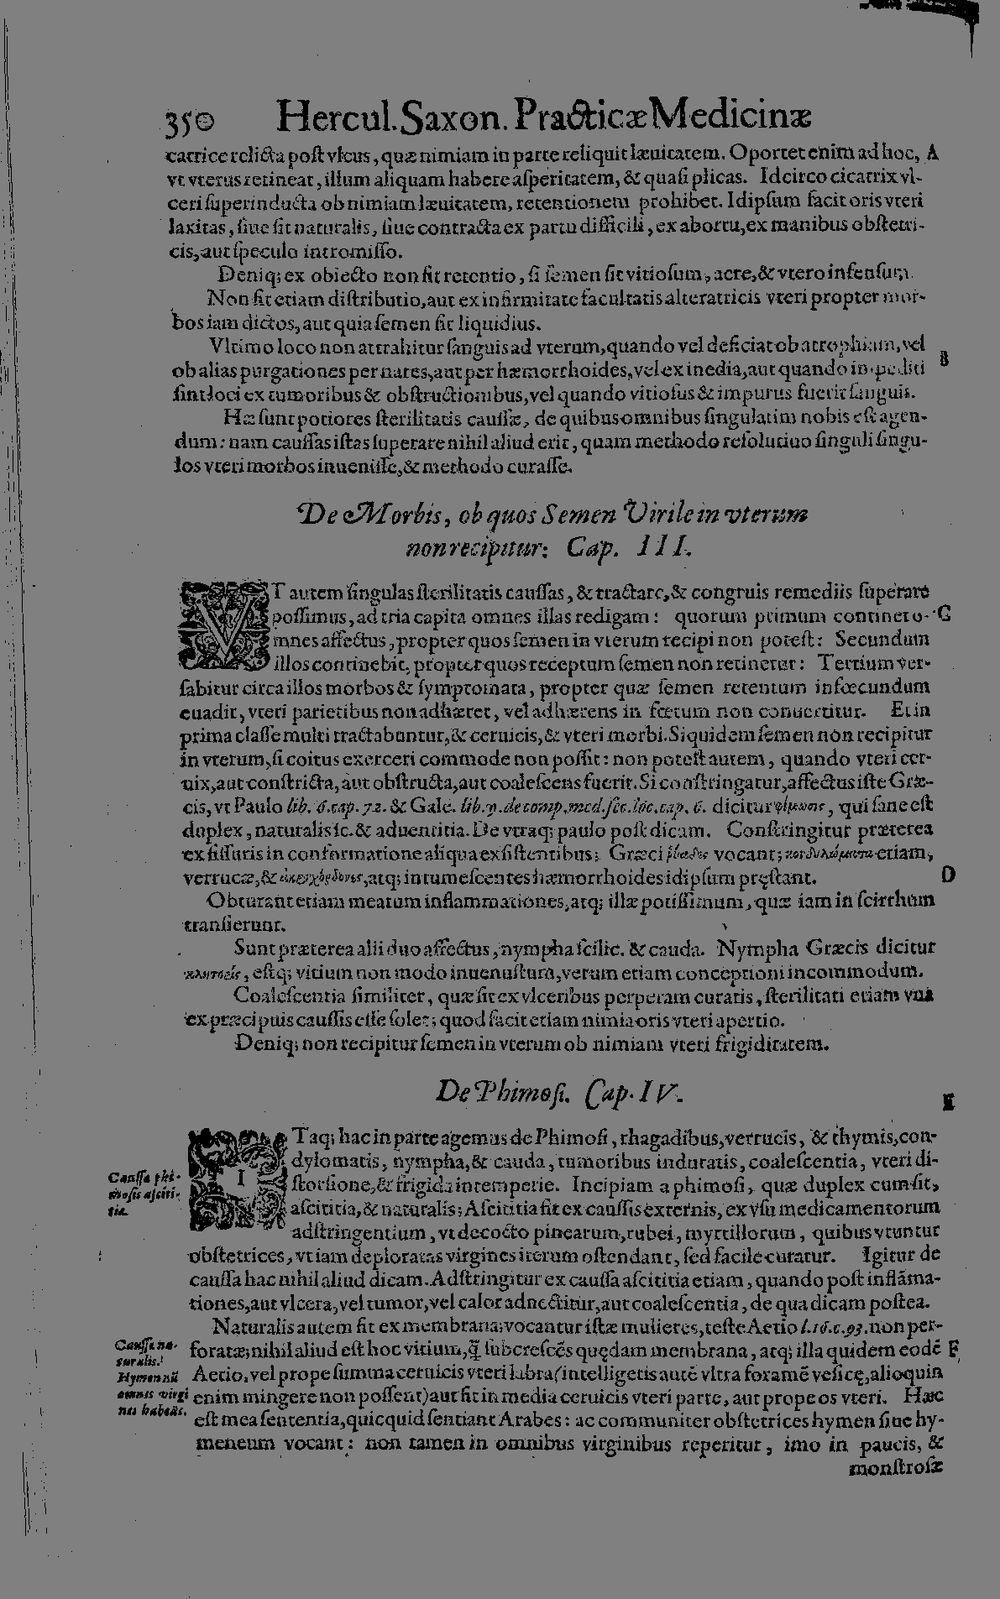 350 Hercul. Saxon. Practicæ Medicinæ
catrice relicta post vlcus, quæ nimiam in parte reliquit læuitatem. Oportet enim ad hoc, A
vt vterus retineat, illum aliquam habere asperitatem, & quasi plicas. Idcirco cicatrix vl-
ceri superinducta ob nimiam læuitatem, retentionem prohibet. Idipsum facit oris vteri
laxitas, siue sit naturalis, siue contracta ex partu difficili, ex abortu, ex manibus obstetri-
cis, aut speculo intromisso.
Deniq; ex obiecto non fit retentio, si semen sit vitiosum, acre, & vtero infensum.
Non fit etiam distributio, aut ex infirmitate facultatis alteratricis vteri propter mor-
bos iam dictos, aut quia semen sit liquidius.
Vltimo loco non attrahitur sanguis ad vterum, quando vel deficiat ob atrophiam, vel
ob alias purgationes per nares, aut per hæmorrhoides, vel ex inedia, aut quando impediti B
sint loci ex tumoribus & obstructionibus, vel quando vitiosus & impurus fuerit sanguis.
Hæ sunt potiores sterilitatis caussæ, de quibus omnibus singulatim nobis est agen-
dum: nam caussas istas superare nihil aliud erit, quam methodo resolutiuo singuli singu-
los vteri morbos inuenisse, & methodo curasse.
De Morbis, ob quos Semen Virile in vterum
non recipitur: Cap. III.
VT autem singulas sterilitatis caussas, & tractare, & congruis remediis superare
possimus, ad tria capita omnes illas redigam: quorum primum continet o- C
mnes affectus, propter quos semen in vterum recipi non potest: Secundum
illos continebit, propter quos receptum semen non retinetur: Tertium ver-
sabitur circa illos morbos & symptomata, propter quæ semen retentum infœcundum
euadit, vteri parietibus non adhæret, vel adhærens in fœtum non conuertitur. Et in
prima classe multi tractabuntur, & ceruicis, & vteri morbi. Siquidem semen non recipitur
in vterum, si coitus exerceri commode non possit: non potest autem, quando vteri cer-
uix, aut constricta, aut obstructa, aut coalescens fuerit. Si constringatur, affectus iste Græ-
cis, vt Paulo lib. 6. cap. 72. & Gale. lib. 9. de comp. med. sec. loc. cap. 6. dicitur φίμωσις, qui sane est
duplex, naturalis sc. & aduentitia. De vtraq; paulo post dicam. Constringitur præterea
ex fissuris in conformatione aliqua exsistentibus; Græci ῥαγάδας vocant; κονδυλώματα etiam,
verrucæ, & atq; intumescentes hæmorrhoides idipsum pręstant. D
Obturant etiam meatum inflammationes, atq; illæ potissimum, quæ iam in scirrhum
transierunt.
Sunt præterea alii duo affectus, nympha scilic. & cauda. Nympha Græcis dicitur
κλιτορὶς, estq; vitium non modo inuenustum, verum etiam conceptioni incommodum.
Coalescentia similiter, quæ fit ex vlceribus perperam curatis, sterilitati etiam vna
ex præcipuis caussis esse solet; quod facit etiam nimia oris vteri apertio.
Deniq; non recipitur semen in vterum ob nimiam vteri frigiditatem.
De Phimosi. Cap. IV.
E
ITaq; hac in parte agemus de Phimosi, rhagadibus, verrucis, & thymis, con-
dylomatis, nympha, & cauda, tumoribus induratis, coalescentia, vteri di-
Caussa phi-
mosis asciti-
tia.
stortione, & frigida intemperie. Incipiam a phimosi, quæ duplex cum sit,
ascititia, & naturalis; Ascititia fit ex caussis externis, ex vsu medicamentorum
adstringentium, vt decocto pinearum, rubei, myrtillorum, quibus vtuntur
obstetrices, vt iam deploratas virgines iterum ostendant, sed facile curatur. Igitur de
caussa hac nihil aliud dicam. Adstringitur ex caussa ascititia etiam, quando post inflāma-
tiones, aut vlcera, vel tumor, vel calor adnectitur, aut coalescentia, de qua dicam postea.
Naturalis autem fit ex membrana; vocantur istæ mulieres, teste Aetio l. 16. c. 93. non per-
Caussa na-
turalis.
Hymen nū
omnis virgi
nes habeāt.
foratæ; nihil aliud est hoc vitium, q̃ subcrescēs quędam membrana, atq; illa quidem eodē F
Aetio, vel prope summa ceruicis vteri labra (intelligetis autē vltra foramē vesicę, alioquin
enim mingere non possent) aut fit in media ceruicis vteri parte, aut prope os vteri. Hæc
est mea sententia, quicquid sentiant Arabes: ac communiter obstetrices hymen siue hy-
meneum vocant: non tamen in omnibus virginibus reperitur, imo in paucis, &
monstrosæ